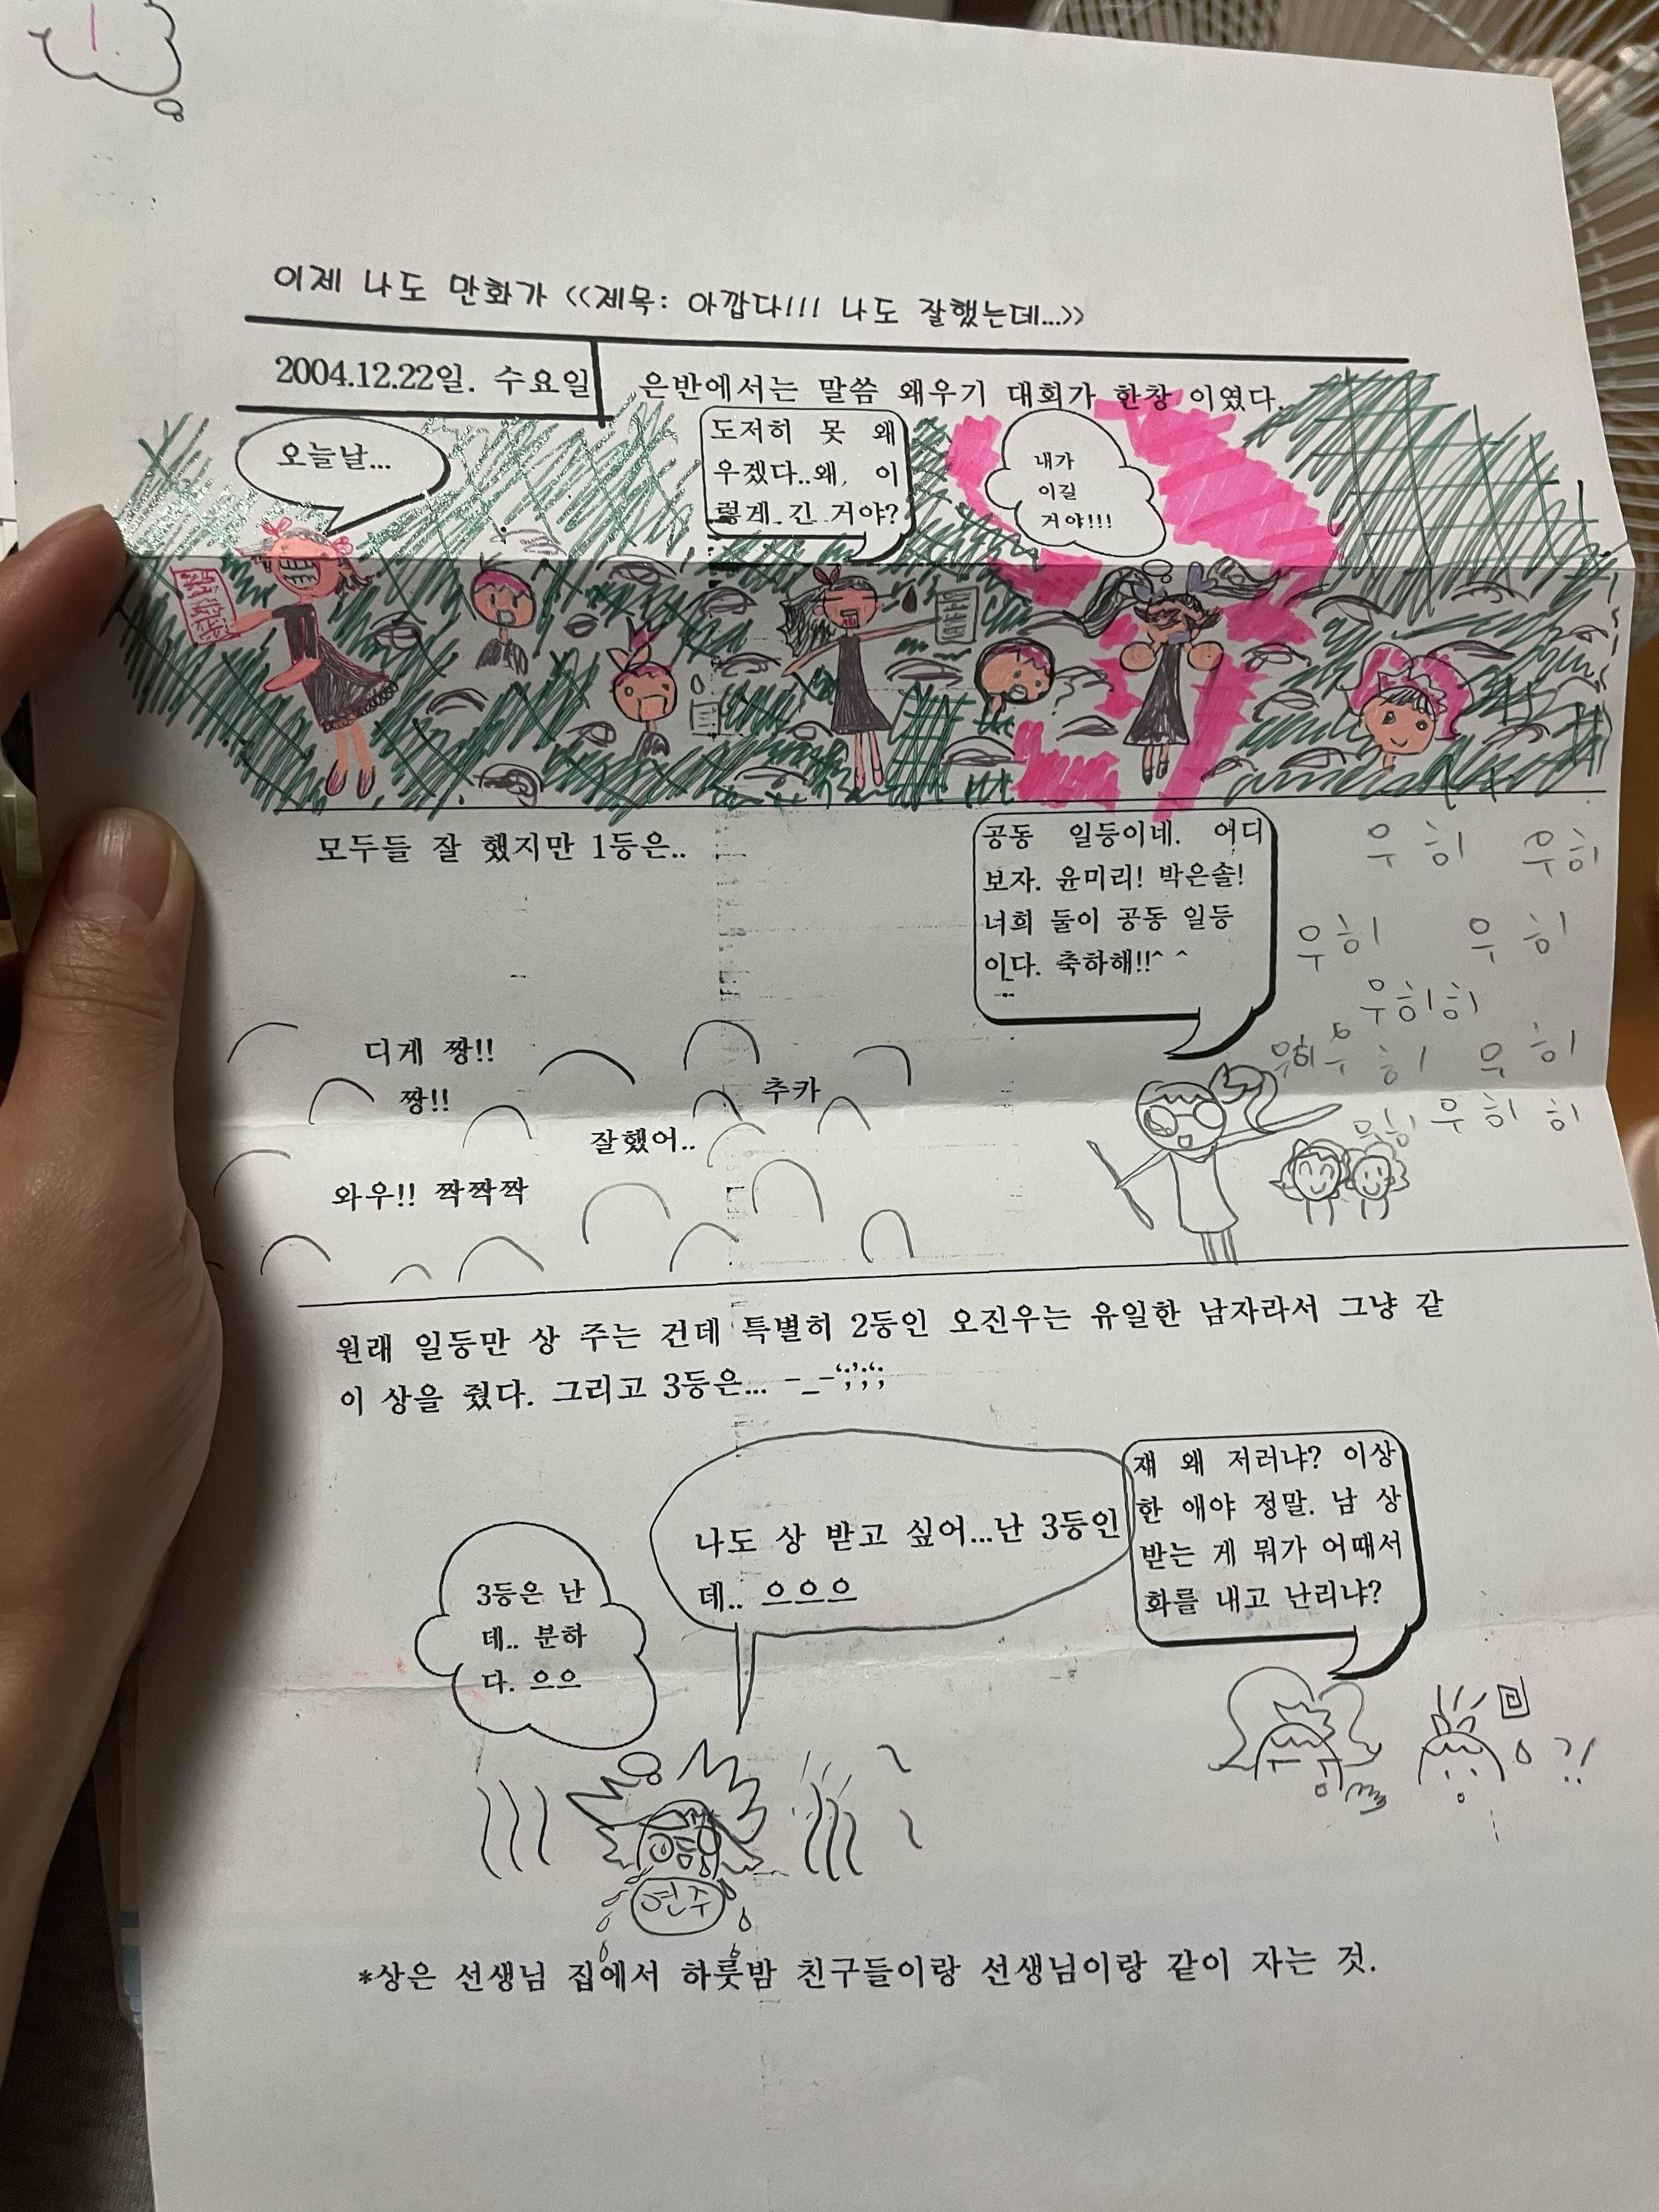 1.
이제 나도 만화가 <<제목: 아깝다!!! 나도 잘했는데...>>
2004.12.22일. 수요일
은반에서는 말씀 왜우기 대회가 한창 이였다.
오늘날...
도저히 못 왜
우겠다..왜, 이
렇게 긴 거야?
내가
이길
거야!!!
모두들 잘 했지만 1등은..
공동 일등이네. 어디
보자. 윤미리! 박은솔!
너희 둘이 공동 일등
이다. 축하해!!^ ^
우히 우히
우히 우히
우히히
우히 우히 우히
우히 우히 히
디게 짱!!
짱!!
추카
잘했어..
와우!! 짝짝짝
원래 일등만 상 주는 건데 특별히 2등인 오진우는 유일한 남자라서 그냥 같
이 상을 줬다. 그리고 3등은... -_-';';';
나도 상 받고 싶어...난 3등인
데.. 으으으
쟤 왜 저러냐? 이상
한 애야 정말. 남 상
받는 게 뭐가 어때서
화를 내고 난리냐?
3등은 난
데.. 분하
다. 으으
?!
현주
*상은 선생님 집에서 하룻밤 친구들이랑 선생님이랑 같이 자는 것.